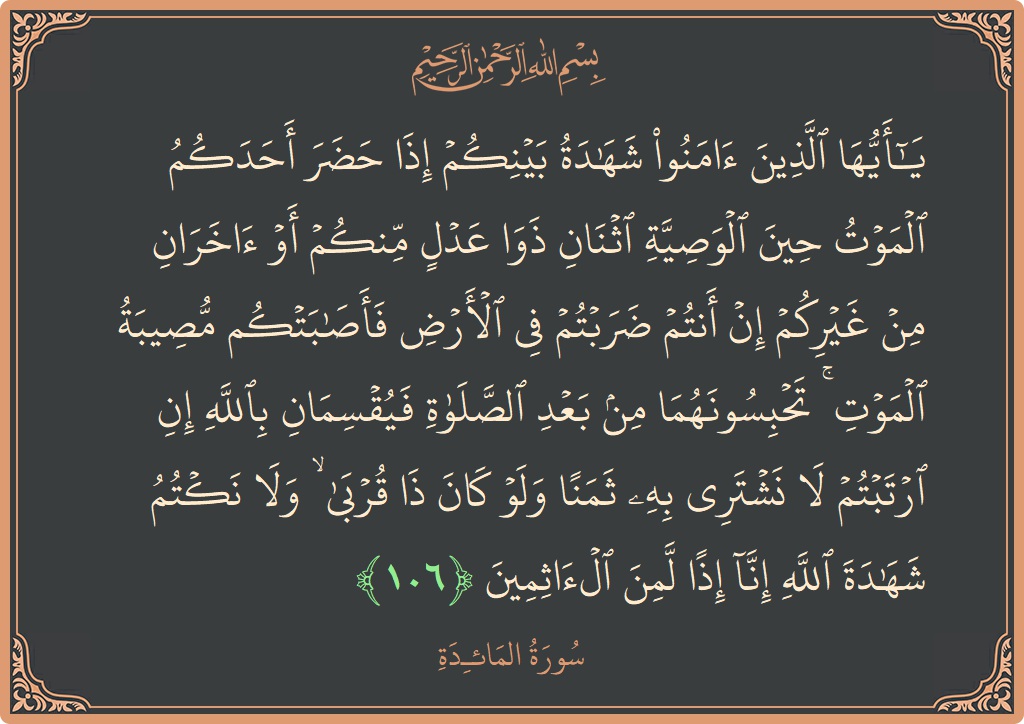 بِسْمِ اللَّهِ الرَّحْمَٰنِ الرَّحِيمِ
يَـٰٓأَيُّهَا ٱلَّذِينَ ءَامَنُوا۟ شَهَـٰدَةُ بَيْنِكُمْ إِذَا حَضَرَ أَحَدَكُمُ
ٱلْمَوْتُ حِينَ ٱلْوَصِيَّةِ ٱثْنَانِ ذَوَا عَدْلٍ مِّنكُمْ أَوْ ءَاخَرَانِ
مِنْ غَيْرِكُمْ إِنْ أَنتُمْ ضَرَبْتُمْ فِى ٱلْأَرْضِ فَأَصَـٰبَتْكُم مُّصِيبَةُ
ٱلْمَوْتِ ۚ تَحْبِسُونَهُمَا مِنۢ بَعْدِ ٱلصَّلَوٰةِ فَيُقْسِمَانِ بِٱللَّهِ إِنِ
ٱرْتَبْتُمْ لَا نَشْتَرِى بِهِۦ ثَمَنًا وَلَوْ كَانَ ذَا قُرْبَىٰ ۙ وَلَا نَكْتُمُ
شَهَـٰدَةَ ٱللَّهِ إِنَّآ إِذًا لَّمِنَ ٱلْـَٔاثِمِينَ ﴿١٠٦﴾
سُورَةُ المَائـِدَةِ